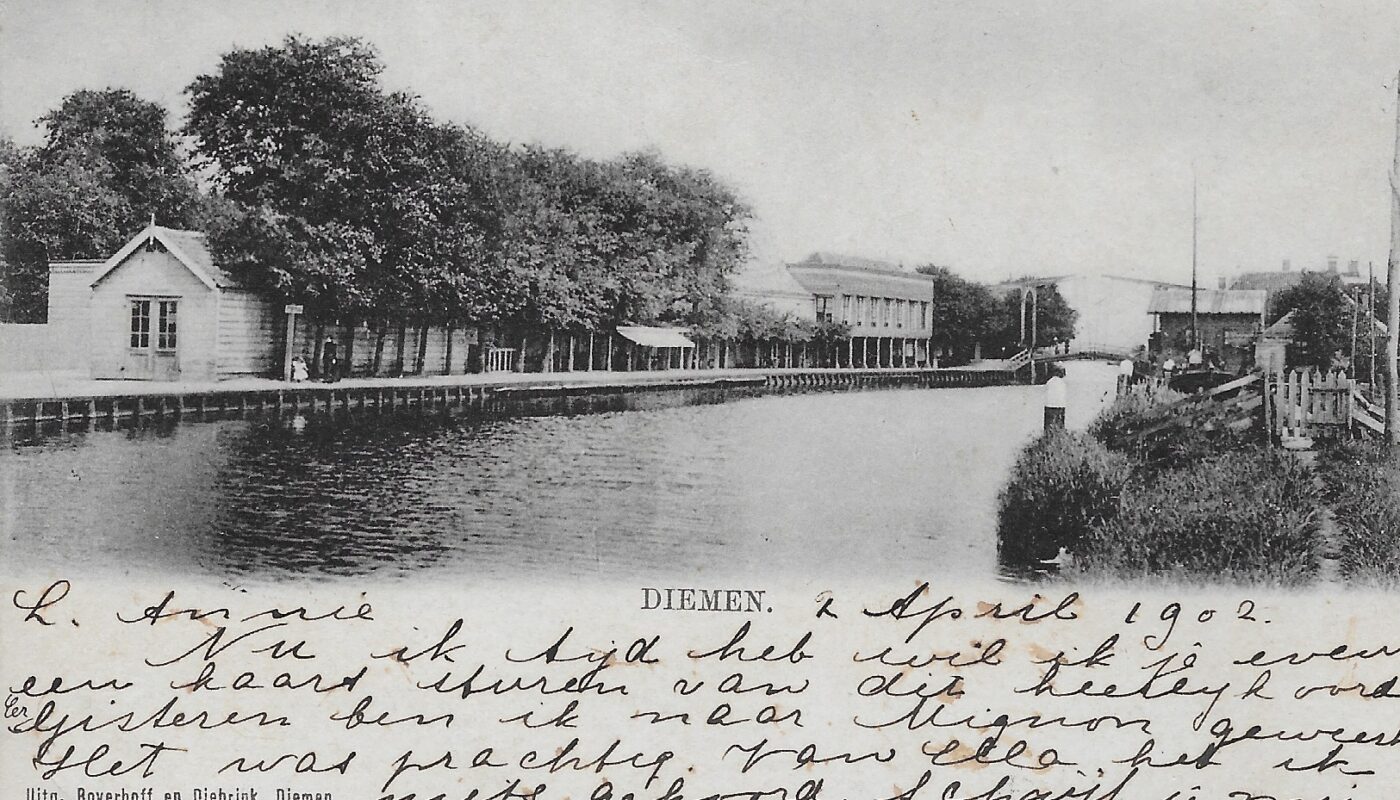 DIEMEN.
L. Annie 2 April 1902.
Nu ik tyd heb wil ik je even
een kaart sturen van dit heerlyk oord
Eer Gisteren ben ik naar Mignon geweest
Het was prachtig. Van Ella heb ik
niets gehoord. Schryf
Uitg. Boverhoff en Diebrink, Diemen